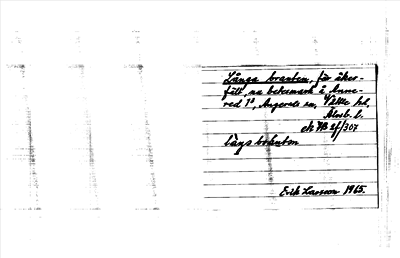 Långa branten, för åker-
fält, nu betesmark å Anne-
red 1⁵, Angereds sn, Vättle hd,
Älvsb. l.
ek NB 2f/307
långsbranten
Erik Larsson 1965.